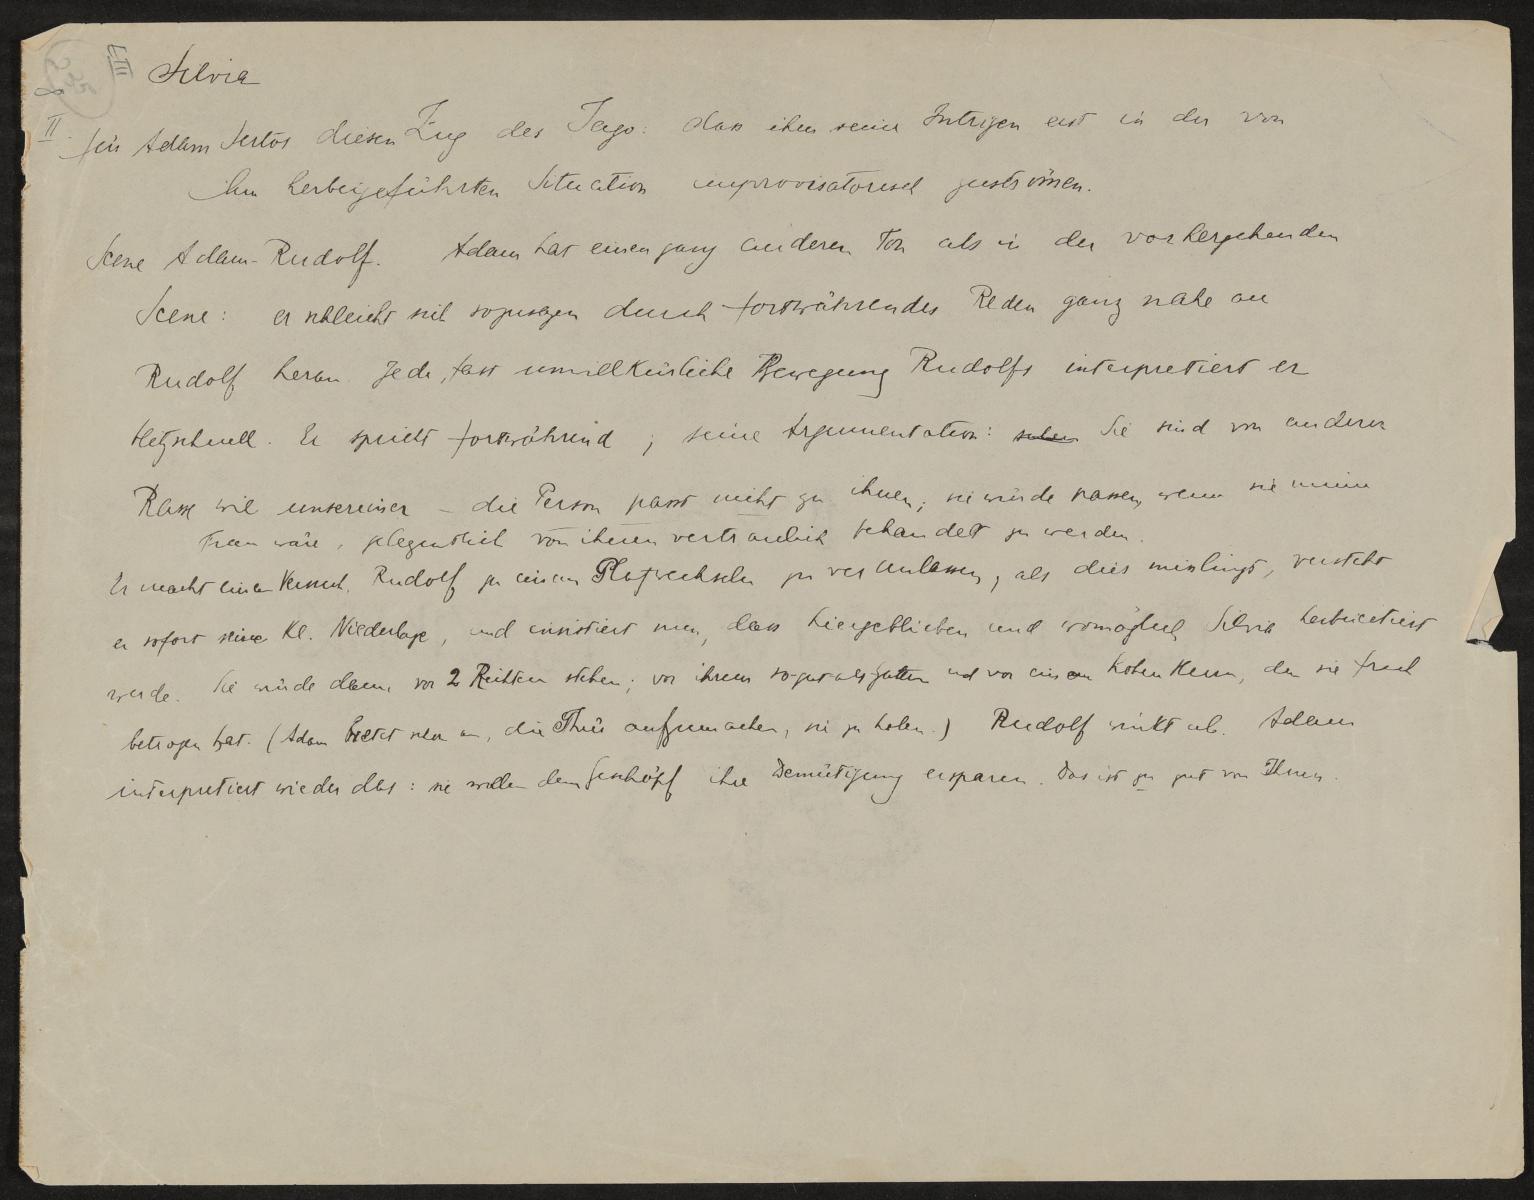 I. III
Silvia
II.
für Adam Sertos diesen Zug des Jago: dass ihm seine Intrigen erst in der von
ihm herbeigeführten Situation improvisatorisch zuströmen.
Scene Adam-Rudolf. Adam hat einen ganz anderen Ton als in der vorhergehenden
Scene: er schleicht sich sozusagen durch fortwährendes Reden ganz nahe an
Rudolf heran. Jede, fast unwillkürliche Bewegung Rudolfs interpretiert er
blitzschnell. Er spricht fortwährend; seine Argumentation: Sie sind von anderer
Rasse wie unsereiner – die Person passt nicht zu ihnen; sie würde passen, wenn sie meine
Frau wäre, gelegentlich von ihnen vertraulich behandelt zu werden.
Er macht einen Versuch, Rudolf zu einem Platzwechseln zu veranlassen, als dies misslingt, versteht
er sofort seine kl. Niederlage, und insistiert nun, dass hiergeblieben und womöglich Silvia herbeicitiert
werde. Sie würde dann vor 2 Richtern stehen; vor ihrem so-gut-als-gatten und vor einem hohen Herrn, den sie frech
betrogen hat. (Adam bietet sich an, die Thür aufzumachen, sie zu holen.) Rudolf winkt ab. Adam
interpretiert wieder dies: sie wollen dem Geschöpf ihre Demütigung ersparen. Das ist zu gut von Ihnen.